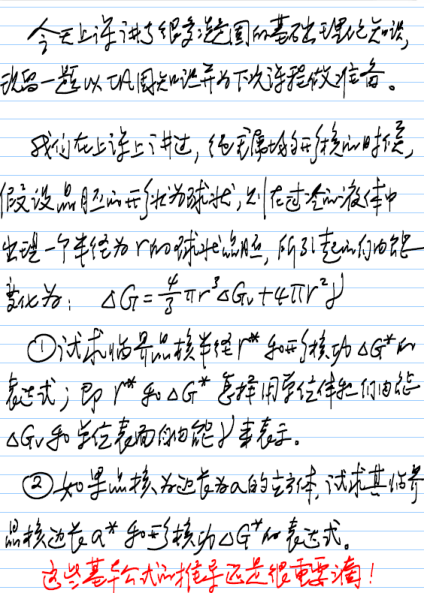 今天上课讲了很多凝固的基础理论知识,
现留一题以巩固知识并为下次课程做准备。
我们在上课上讲过,纯金属均匀形核的时候,
假设晶胚的形状为球状,则在过冷的液体中
出现一个半径为r的球状晶胚,所引起的自由能
变化为: ΔG=4/3πr³ΔGv+4πr²γ
①试求临界晶核半径r*和形核功ΔG*的
表达式;即r*和ΔG*怎样用单位体积自由能
ΔGv和单位表面自由能γ来表示。
②如果晶核为边长为a的立方体,试求其临界
晶核边长a*和形核功ΔG*的表达式。
这些基本公式的推导还是很重要滴!